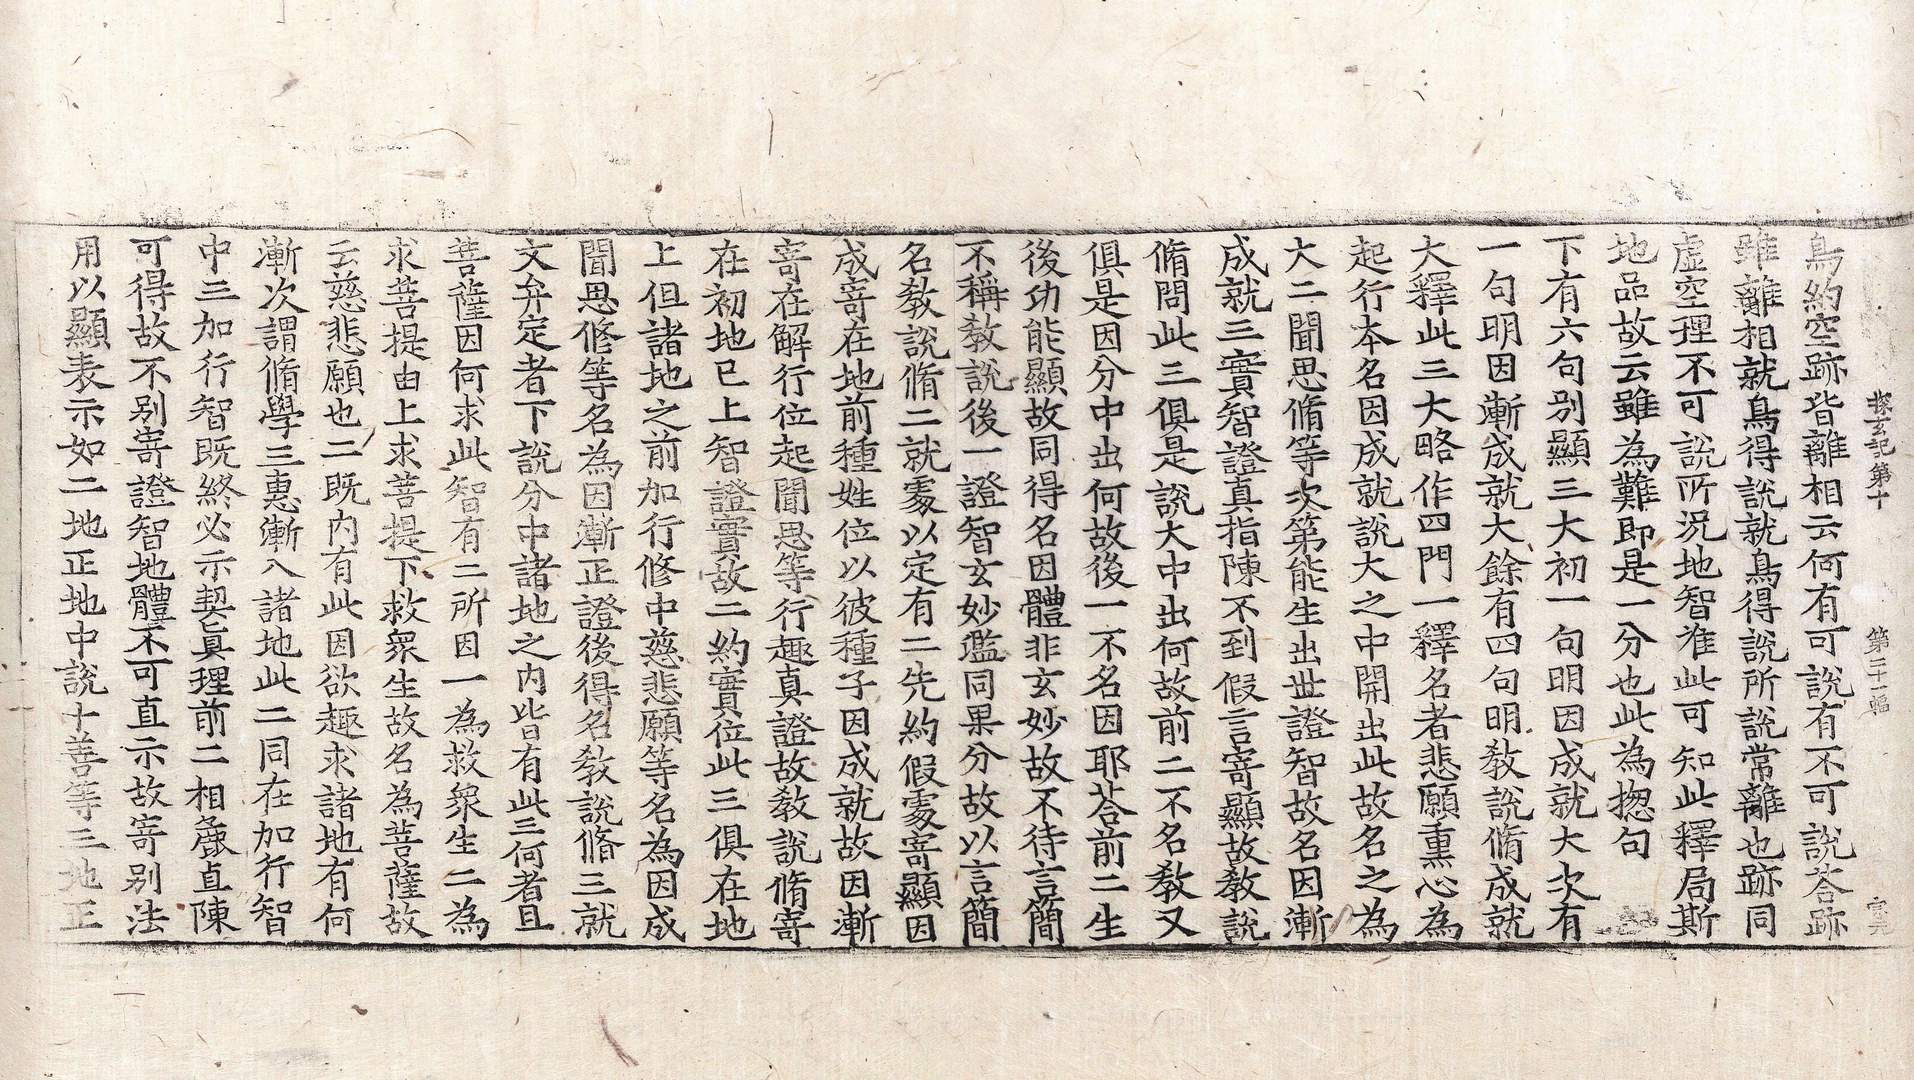 探玄記第十 第二十一幅 守元
鳥約空跡皆離相云何有可說有不可說荅跡
雖離相就鳥得說就鳥得說所說常離也跡同
虛空理不可說所況地智准此可知此釋局斯
地品故云雖為難即是一分也此為揔句
下有六句別顯三大初一句明因成就大次有
一句明因漸成就大餘有四句明教說脩成就
大釋此三大略作四門一釋名者悲願熏心為
起行本名因成就說大之中開出此故名之為
大二聞思脩等次第能生出世證智故名因漸
成就三實智證真指陳不到假言寄顯故教說
脩問此三俱是說大中出何故前二不名教又
俱是因分中出何故後一不名因耶荅前二生
後功能顯故同得名因體非玄妙故不待言簡
不稱教說後一證智玄妙濫同果分故以言簡
名教說脩二就處以定有二先約假處寄顯因
成寄在地前種姓位以彼種子因成就故因漸
寄在解行位起聞思等行趣真證故教說脩寄
在初地已上智證實故二約實位此三俱在地
上但諸地之前加行修中慈悲願等名為因成
聞思修等名為因漸正證後得名教說脩三就
文弁定者下說分中諸地之內皆有此三何者且
菩薩因何求此智有二所因一為救衆生二為
求菩提由上求菩提下救衆生故名為菩薩故
云慈悲願也二既內有此因欲趣求諸地有何
漸次謂脩學三惠漸入諸地此二同在加行智
中三加行智既終必示契真理前二相麁直陳
可得故不别寄證智地體不可直示故寄别法
用以顯表示如二地正地中說十善等三地正